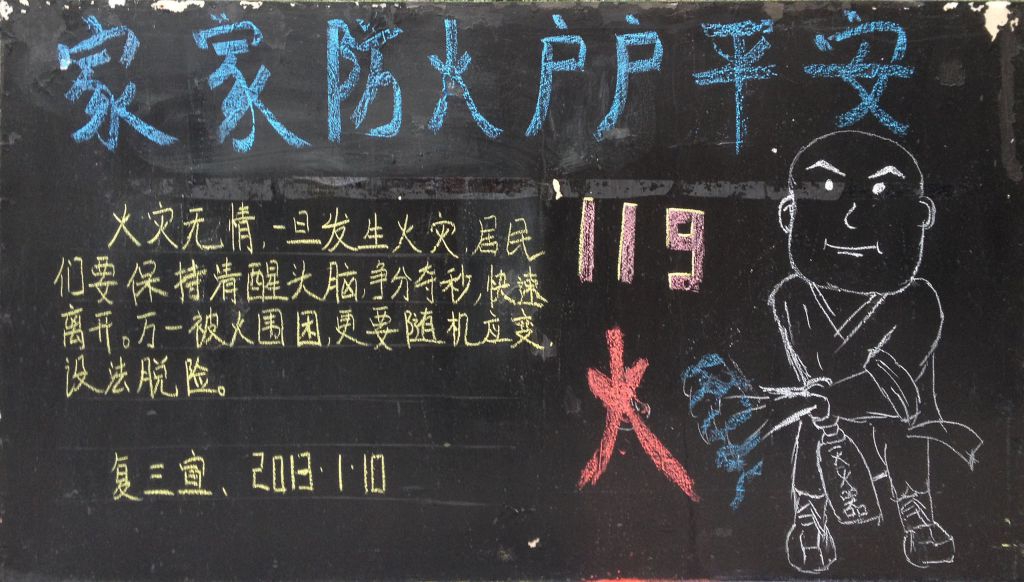 家家防火户户平安
火灾无情，一旦发生火灾，居民
们要保持清醒头脑，争分夺秒，快速
离开。万一被火围困，更要随机应变，
设法脱险。
复三宣、2013·1·10
119
火
灭火器